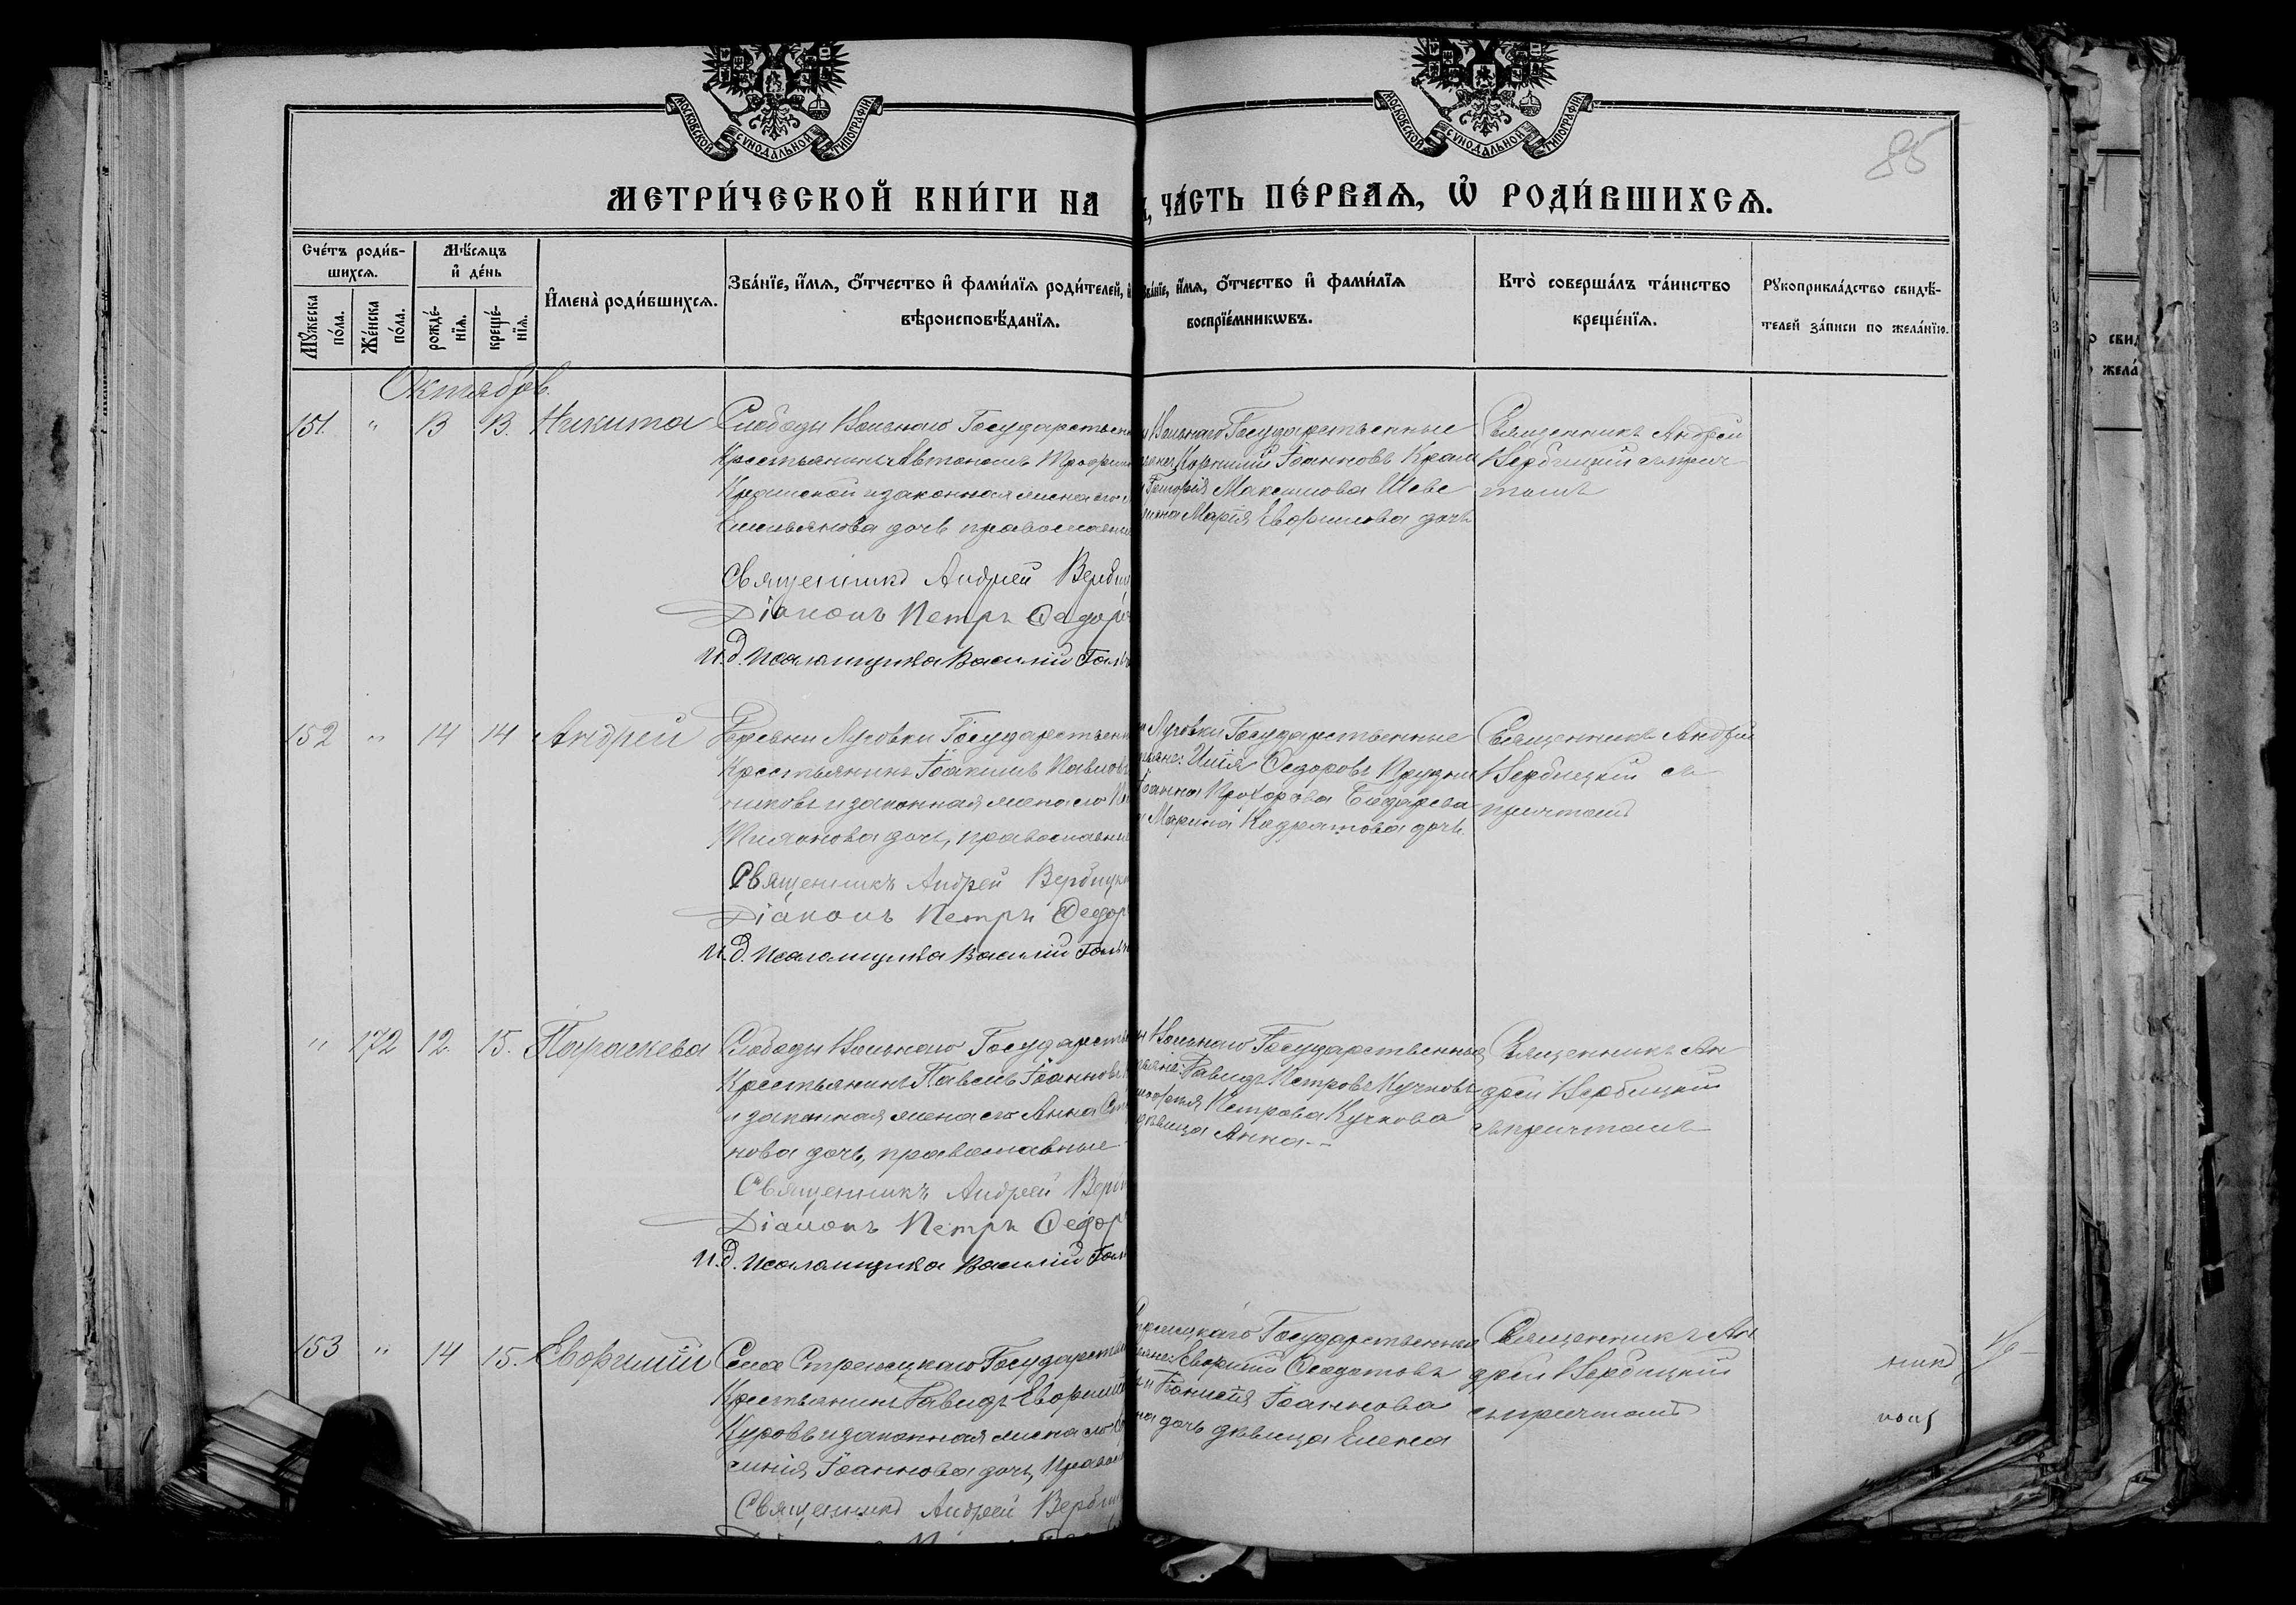 МОСКОВСКОЙ СУНОДАЛЬНОЙ ТИПОГРАФІИ
МОСКОВСКОЙ СУНОДАЛЬНОЙ ТИПОГРАФІИ
85
МЕТРИ́ЧЕСКОЙ КНИ́ГИ НА
ЧА́СТЬ ПЕ́РВАѦ, Ѽ РОДИ́ВШИХСѦ.
Сче́тъ роди́в-
шихсѧ.
Мꙋ́жеска по́ла.
Же́нска по́ла.
Мѣ́сѧцъ
и҆ де́нь
рожде́-
нїѧ.
креще́-
нїѧ.
И҆мена̀ роди́вшихсѧ.
Зва́нїе, и҆́мѧ, ѻ҆́тчество и҆ фами́лїѧ роди́телей,
вѣроисповѣ́данїѧ.
Зва́нїе, и҆́мѧ, ѻ҆́тчество и҆ фами́лїѧ
воспрїе́мникѡвъ.
Кто̀ соверша́лъ та́инство
креще́нїѧ.
Рꙋкоприкла́дство свидѣ́-
телей за́писи по жела́нїю.
Октябрь.
151. " 13 13. Никита
Слободы Вольнаго Государствен
Крестьянинъ Автономъ Трофим
и законная жена его
Емельянова дочь православные
Священникъ Андрей Верби
Діаконъ Петръ Федор
И.д. Псаломщика Василій Голь
Вольнаго Государственные
Корнилій Іоанновъ Крам
Максимова Шеве
Марія Евфимова дочь
Священникъ Андрей
Вербицкій съ прич
томъ
152 " 14 14 Андрей
Деревни Луговки Государствен
Крестьянинъ Іоакимъ Павловъ
никовъ и законная жена его
дочь, православные
Священникъ Андрей Вербицк
Діаконъ Петръ Федор
И.д. Псаломщика Василій Голь
Луговки Государственные
Илія Федоровъ Прудни
Прохорова
Марина Кодратова дочь
Священникъ Андрей
Вербицкій съ
причтомъ
" 172 12. 15. Параскева
Слободы Вольнаго Государств
Крестьянинъ Павелъ Іоанновъ
и законная жена его Анна
нова дочь, православные
Священникъ Андрей Верби
Діаконъ Петръ Федор
И.д. Псаломщика Василій Голь
Вольнаго Государственные
Давидъ Петровъ Кучковъ
Петрова Кучкова
дѣвица Анна
Священникъ Ан
дрей Вербицкій
съ причтомъ
153 " 14 15. Евфимій
Села Стрелецкаго Государств
Крестьянинъ Давидъ Евфим
Куровъ и законная жена его
синія Іоаннова дочь, Правос
Священникъ Андрей Верби
Государственные
Евфимій Федотовъ
Іоаннова
дочь дѣвица Елена
Священникъ Ан
дрей Вербицкій
съ причтомъ